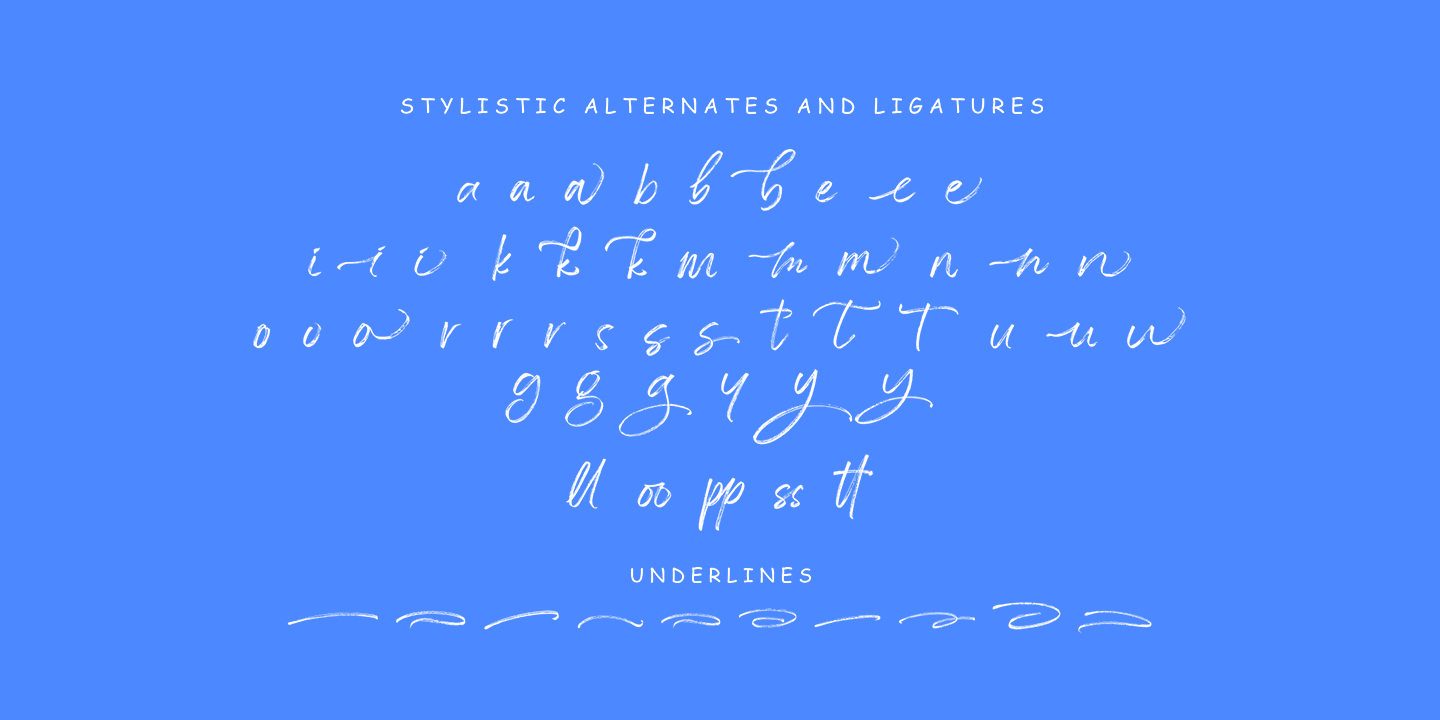 STYLISTIC ALTERNATES AND LIGATURES
a a a b b b e e e
i i i k k k m m m n n n
o o o r r r s s s t t t u u u
g g g y y y
ll oo pp ss tt
UNDERLINES